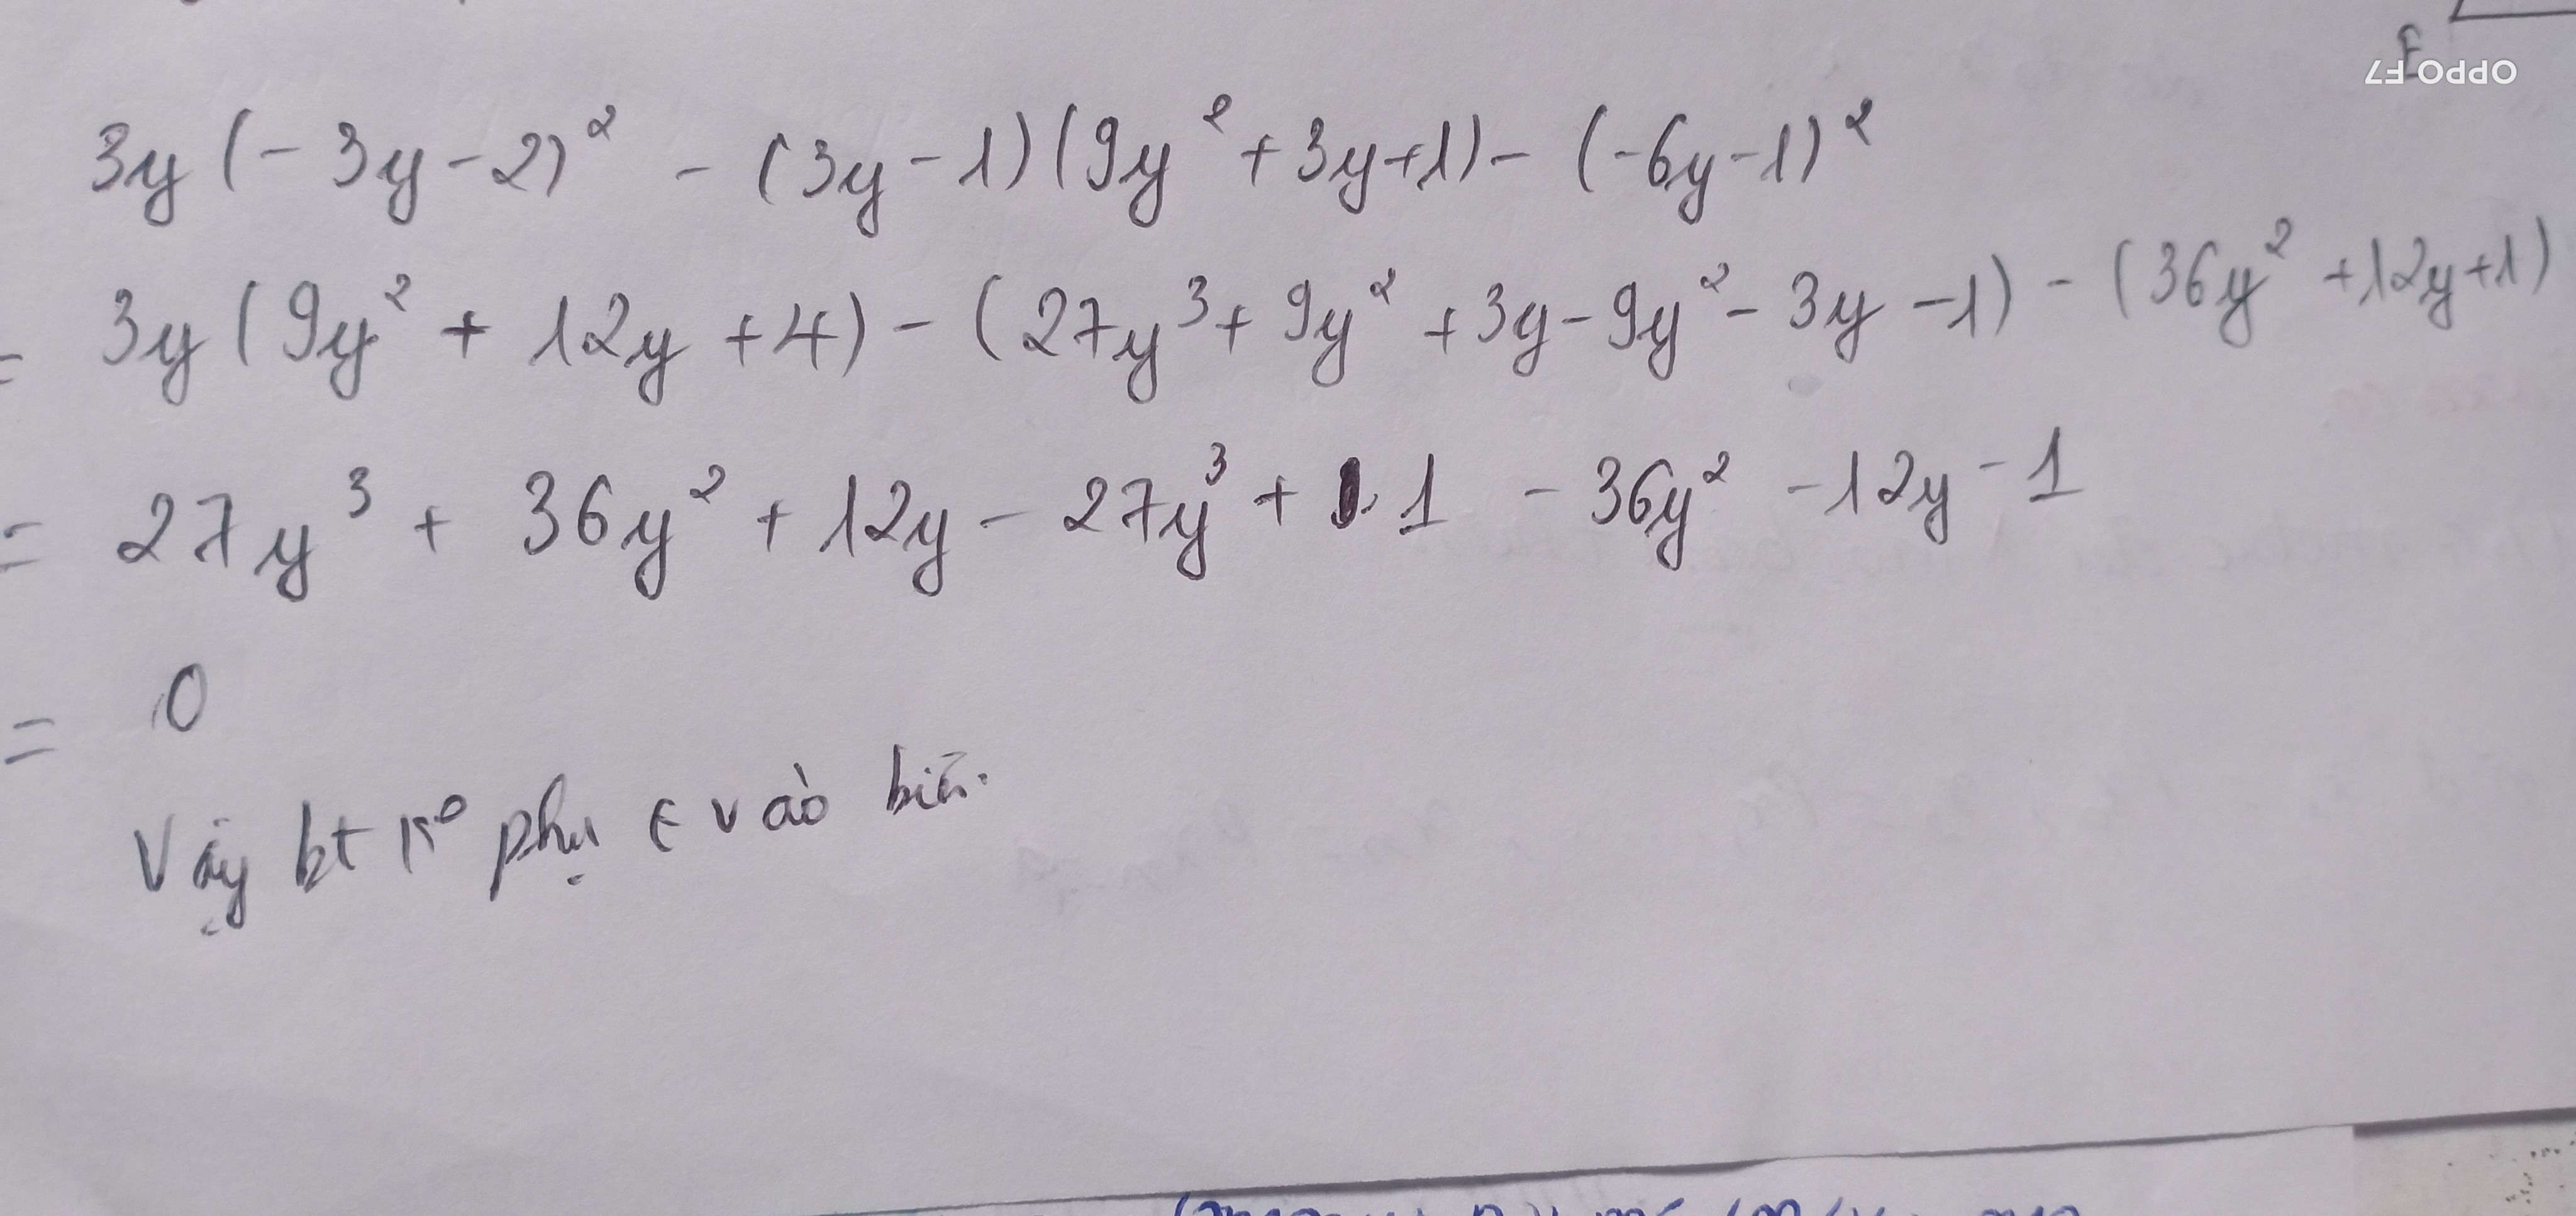 E
OPPO F7
3y(-3y-2)² - (3y-1)(9y²+3y+1)- (-6y-1)²
= 3y(9y² + 12y +4) - (27y³+ 9y² +3y-9y²- 3y -1) - (36y² +12y+1)
= 27y³ + 36y² +12y - 27y³ + 1 - 36y² -12y -1
= 0
Vậy bt k° phụ t vào biến.